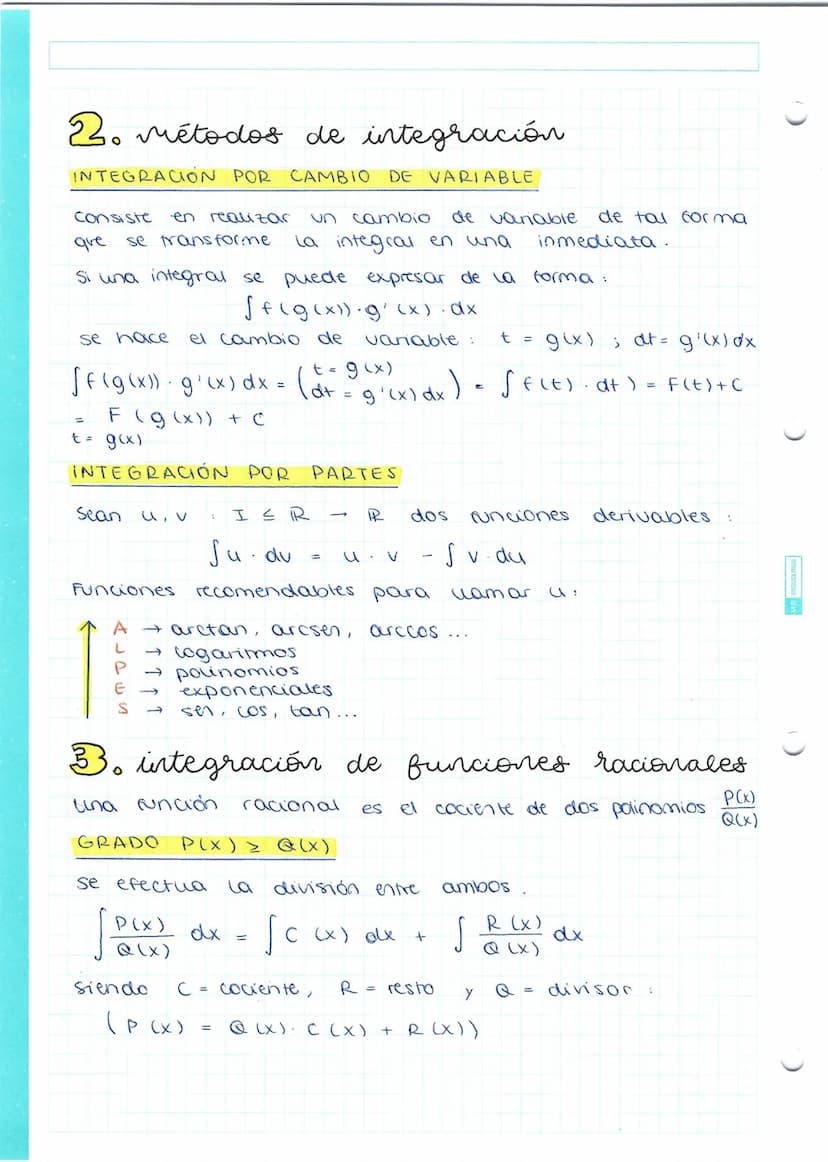 2. métodos de integración
INTEGRACIÓN POR CAMBIO DE VARIABLE
Consiste en realizar un cambio de variable de tal forma
que se transforme la integral en una inmediata.
Si una integral se puede expresar de la forma:
∫ f(g(x)) · g'(x) · dx
se hace el cambio de variable : t = g(x) ; dt = g'(x) dx
∫ f(g(x)) · g'(x) dx = ( t = g(x) dt = g'(x) dx ) = ∫ f(t) · dt ) = F(t) + C
= F (g(x)) + C
t = g(x)
INTEGRACIÓN POR PARTES
Sean u, v : I ≤ ℝ → ℝ dos funciones derivables :
∫ u · dv = u · v - ∫ v · du
Funciones recomendables para llamar u :
A → arctan, arcsen, arccos ...
L → logaritmos
P → polinomios
E → exponenciales
S → sen, cos, tan ...
3. integración de funciones racionales
Una función racional es el cociente de dos polinomios P(x)/Q(x)
GRADO P(X) ≥ Q(X)
Se efectua la división entre ambos.
∫ P(x)/Q(x) dx = ∫ C (x) dx + ∫ R(x)/Q(x) dx
Siendo C = cociente, R = resto y Q = divisor :
( P(x) = Q(x) · C(x) + R(x))